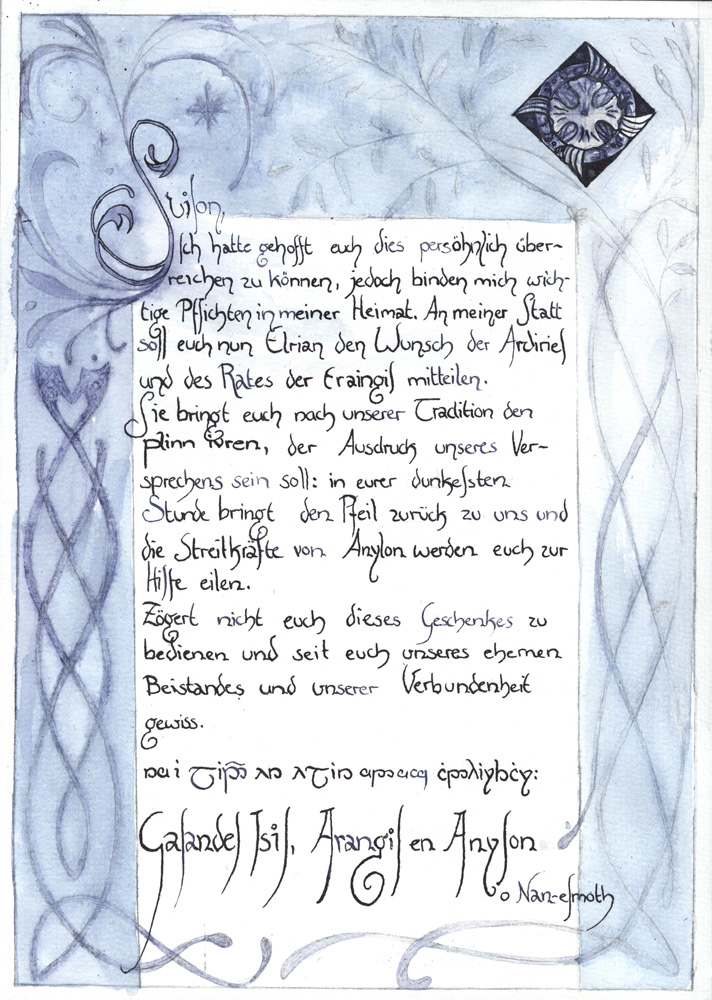 Suilon,
Ich hatte gehofft euch dies persöhnlich über-
reichen zu können, jedoch binden mich wich-
tige Pflichten in meiner Heimat. An meiner Statt
soll euch nun Elrian den Wunsch der Ardiriel
und des Rates der Eraingil mitteilen.
Sie bringt euch nach unserer Tradition den
plinn der Ausdruck unseres Ver-
sprechens sein soll: in eurer dunkelsten
Stunde bringt den Pfeil zurück zu uns und
die Streitkräfte von Anylon werden euch zur
Hilfe eilen.
Zögert nicht euch dieses Geschenkes zu
bedienen und seit euch unseres ehernen
Beistandes und unserer Verbundenheit
gewiss.
Galandel Isil, Arangil en Anylon
o Nan-elmoth